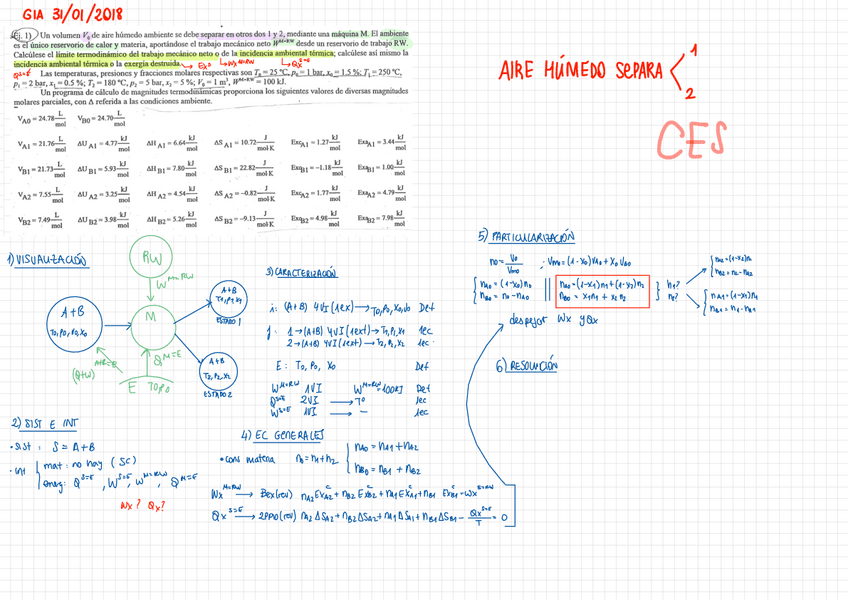 GIA 31/01/2018
Ej. 1) Un volumen V₀ de aire húmedo ambiente se debe separar en otros dos 1 y 2, mediante una máquina M. El ambiente
es el único reservorio de calor y materia, aportándose el trabajo mecánico neto W^M↔RW desde un reservorio de trabajo RW.
Calcúlese el límite termodinámico del trabajo mecánico neto o de la incidencia ambiental térmica; calcúlese así mismo la
incidencia ambiental térmica o la exergía destruida.
Las temperaturas, presiones y fracciones molares respectivas son T₀ = 25 °C, p₀ = 1 bar, x₀ = 1.5 %; T₁ = 250 °C,
p₁ = 2 bar, x₁ = 0.5 %; T₂ = 180 °C, p₂ = 5 bar, x₂ = 5 %; V₀ = 1 m³, W^M↔RW = 100 kJ.
Un programa de cálculo de magnitudes termodinámicas proporciona los siguientes valores de diversas magnitudes
molares parciales, con Δ referida a las condiciones ambiente.
V A0 = 24.78 L/mol V B0 = 24.70 L/mol
V A1 = 21.76 L/mol ΔU A1 = 4.77 kJ/mol ΔH A1 = 6.64 kJ/mol ΔS A1 = 10.72 J/mol·K Exc A1 = 1.27 kJ/mol Exa A1 = 3.44 kJ/mol
V B1 = 21.73 L/mol ΔU B1 = 5.93 kJ/mol ΔH B1 = 7.80 kJ/mol ΔS B1 = 22.82 J/mol·K Exc B1 = −1.18 kJ/mol Exa B1 = 1.00 kJ/mol
V A2 = 7.55 L/mol ΔU A2 = 3.25 kJ/mol ΔH A2 = 4.54 kJ/mol ΔS A2 = −0.82 J/mol·K Exc A2 = 1.77 kJ/mol Exa A2 = 4.79 kJ/mol
V B2 = 7.49 L/mol ΔU B2 = 3.98 kJ/mol ΔH B2 = 5.26 kJ/mol ΔS B2 = −9.13 J/mol·K Exc B2 = 4.98 kJ/mol Exa B2 = 7.98 kJ/mol
AIRE HÚMEDO SEPARA
1
2
CES
1) VISUALIZACIÓN
RW
W^M↔RW
A+B
T₀,p₀,x₀
M
A+B
T₁,P₁,x₁
ESTADO 1
A+B
T₂,P₂,x₂
ESTADO 2
Q^M↔E
(Q+W)
E T₀,p₀
2) SIST E INT
• SIST : S = A+B
• Int
mat: no hay (SC)
Energ: Q^S↔E, W^S↔E, W^M↔RW, Q^M↔E
Wx? Qx?
3) CARACTERIZACIÓN
i: (A+B) 4VI (1ex) → T₀,P₀,x₀,V₀ Def
f: 1→(A+B) 4VI (1ext) → T₁,P₁,x₁ lec
2→(A+B) 4VI (1ext) → T₂,P₂,x₂ lec
E: T₀, P₀, x₀ Def
W^M↔RW 1VI W^M↔RW = 100kJ Def
Q^S↔E 2VI → T₀ lec
W^S↔E 1VI → — lec
4) EC GENERALES
• cons materia n₀ = n₁+n₂
n A0 = n A1 + n A2
n B0 = n B1 + n B2
5) PARTICULARIZACIÓN
n₀ = V₀/Vm₀ ; Vm₀ = (1-x₀)V A0 + x₀ V B0
n A0 = (1-x₀) n₀
n B0 = n₀ - n A0
n A0 = (1-x₁) n₁ + (1-x₂) n₂
n B0 = x₁n₁ + x₂ n₂
n₁?
n₂?
n A2 = (1-x₂) n₂
n B2 = n₂ - n A2
n A1 = (1-x₁) n₁
n B1 = n₁ - n A1
despejar Wx y Qx
6) RESOLUCIÓN